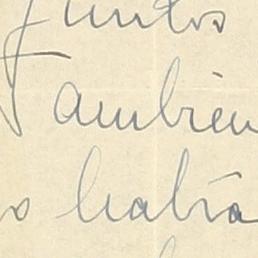 juntos
También
había